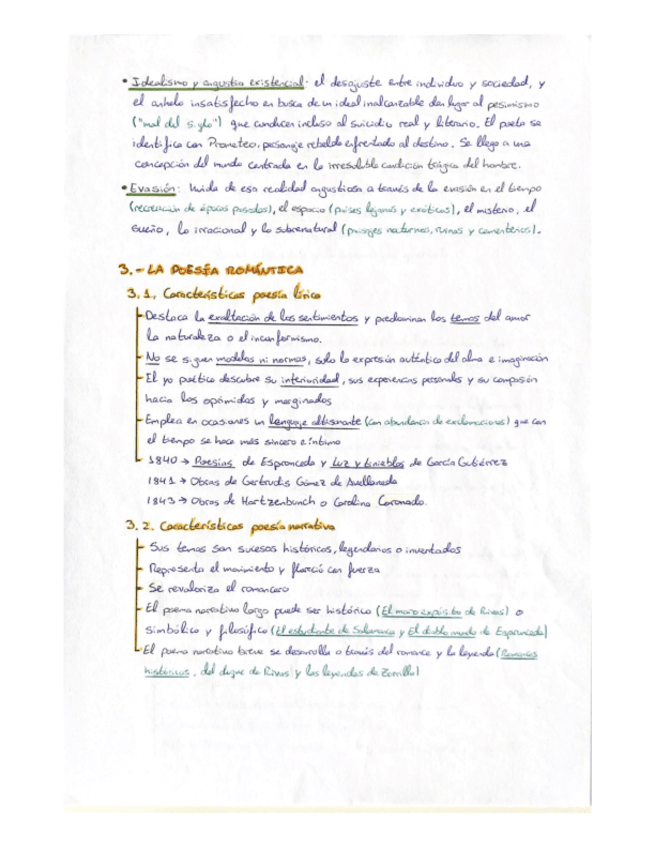 • Idealismo y angustia existencial: el desajuste entre individuo y sociedad, y
el anhelo insatisfecho en busca de un ideal inalcanzable dan lugar al pesimismo
("mal del siglo") que conducen incluso al suicidio real y literario. El poeta se
identifica con Prometeo, personaje rebelde enfrentado al destino. Se llega a una
concepción del mundo centrada en la irresoluble condición trágica del hombre.
• Evasión: huida de esa realidad angustiosa a través de la evasión en el tiempo
(recreación de épocas pasadas), el espacio (países lejanos y exóticos), el misterio, el
sueño, lo irracional y lo sobrenatural (paisajes nocturnos, ruinas y cementerios).
3.- LA POESÍA ROMÁNTICA
3.1. Características poesía lírica
Destaca la exaltación de los sentimientos y predominan los temas del amor
la naturaleza o el inconformismo.
No se siguen modelos ni normas, solo la expresión auténtica del alma e imaginación
El yo poético descubre su interioridad, sus experiencias personales y su compasión
hacia los oprimidos y marginados
Emplea en ocasiones un lenguaje altisonante (con abundancia de exclamaciones) que con
el tiempo se hace más sincero e íntimo
1840 → Poesías de Espronceda y Luz y tinieblas de García Gutiérrez
1841 → Obras de Gertrudis Gómez de Avellaneda
1843 → Obras de Hartzenbunch o Carolina Coronado.
3.2. Características poesía narrativa
Sus temas son sucesos históricos, legendarios o inventados
Representa el movimiento y floreció con fuerza
Se revaloriza el romancero
El poema narrativo largo puede ser histórico (El moro expósito de Rivas) o
simbólico y filosófico (El estudiante de Salamanca y El diablo mundo de Espronceda)
El poema narrativo breve se desarrolla a través del romance y la leyenda (Romances
históricos, del duque de Rivas y las leyendas de Zorrilla)